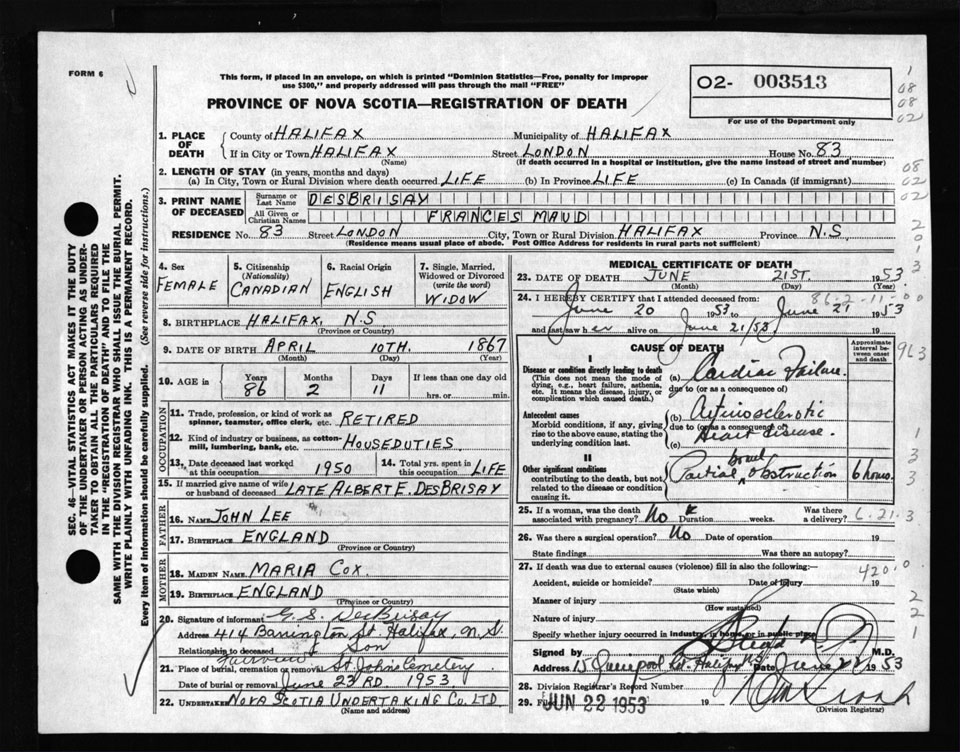 FORM 6
This form, if placed in an envelope, on which is printed "Dominion Statistics—Free, penalty for improper
use $300," and properly addressed will pass through the mail "FREE"
02- 003513
For use of the Department only
PROVINCE OF NOVA SCOTIA—REGISTRATION OF DEATH
SEC. 46—VITAL STATISTICS ACT MAKES IT THE DUTY
OF THE UNDERTAKER OR PERSON ACTING AS UNDER-
TAKER TO OBTAIN ALL THE PARTICULARS REQUIRED
IN THE "REGISTRATION OF DEATH" AND TO FILE THE
SAME WITH THE DIVISION REGISTRAR WHO SHALL ISSUE THE BURIAL PERMIT.
WRITE PLAINLY WITH UNFADING INK. THIS IS A PERMANENT RECORD.
Every item of information should be carefully supplied. (See reverse side for instructions.)
1. PLACE OF DEATH County of HALIFAX Municipality of HALIFAX
If in City or Town HALIFAX Street LONDON House No. 83
(Name) (If death occurred in a hospital or institution, give the name instead of street and number)
2. LENGTH OF STAY (in years, months and days)
(a) In City, Town or Rural Division where death occurred LIFE (b) In Province LIFE (c) In Canada (if immigrant)
3. PRINT NAME OF DECEASED Surname or Last Name DESBRISAY
All Given or Christian Names FRANCES MAUD
RESIDENCE No. 83 Street LONDON City, Town or Rural Division HALIFAX Province N.S.
(Residence means usual place of abode. Post Office Address for residents in rural parts not sufficient)
4. Sex FEMALE
5. Citizenship (Nationality) CANADIAN
6. Racial Origin ENGLISH
7. Single, Married, Widowed or Divorced (write the word) WIDOW
8. BIRTHPLACE HALIFAX, N.S
(Province or Country)
9. DATE OF BIRTH APRIL 10TH. 1867
(Month) (Day) (Year)
10. AGE in Years 86 Months 2 Days 11 If less than one day old hrs. or min.
OCCUPATION
11. Trade, profession, or kind of work as spinner, teamster, office clerk, etc. RETIRED
12. Kind of industry or business, as cotton-mill, lumbering, bank, etc. HOUSEDUTIES
13. Date deceased last worked at this occupation 1950 14. Total yrs. spent in this occupation LIFE
15. If married give name of wife or husband of deceased LATE ALBERT E. DESBRISAY
FATHER
16. NAME JOHN LEE
17. BIRTHPLACE ENGLAND
(Province or Country)
MOTHER
18. MAIDEN NAME MARIA COX.
19. BIRTHPLACE ENGLAND
(Province or Country)
20. Signature of informant G.S. DesBrisay
Address 414 Barrington St. Halifax, N.S.
Relationship to deceased Son
21. Place of burial, cremation or removal Fairview St. Johns Cemetery
Date of burial or removal June 23RD. 1953.
22. UNDERTAKER NOVA SCOTIA UNDERTAKING CO. LTD
(Name and address)
MEDICAL CERTIFICATE OF DEATH
23. DATE OF DEATH JUNE 21ST. 1953.
(Month) (Day) (Year)
86-2-11-00
24. I HEREBY CERTIFY that I attended deceased from:
June 20 1953 to June 21 1953
and last saw her alive on June 21/53 19
CAUSE OF DEATH
Approximate interval between onset and death
I
Disease or condition directly leading to death
(This does not mean the mode of dying, e.g., heart failure, asthenia, etc. It means the disease, injury, or complication which caused death.)
(a) Cardiac Failure.
due to (or as a consequence of)
Antecedent causes
Morbid conditions, if any, giving rise to the above cause, stating the underlying condition last.
(b) Arteriosclerotic
due to (or as a consequence of)
(c) Heart disease.
II
Other significant conditions
contributing to the death, but not related to the disease or condition causing it.
Partial bowel obstruction 6 hours.
25. If a woman, was the death associated with pregnancy? No Duration weeks. Was there a delivery? 6.21.3
26. Was there a surgical operation? No Date of operation 19
State findings Was there an autopsy?
27. If death was due to external causes (violence) fill in also the following:—
420.0
Accident, suicide or homicide? Date of injury 19
(State which)
Manner of injury
(How sustained)
Nature of injury
Specify whether injury occurred in industry, in home, or in public place
Signed by M.D.
Address 15 Liverpool St. Halifax NS Date June 22 1953
28. Division Registrar's Record Number
29. Filed JUN 22 1953 19
(Division Registrar)